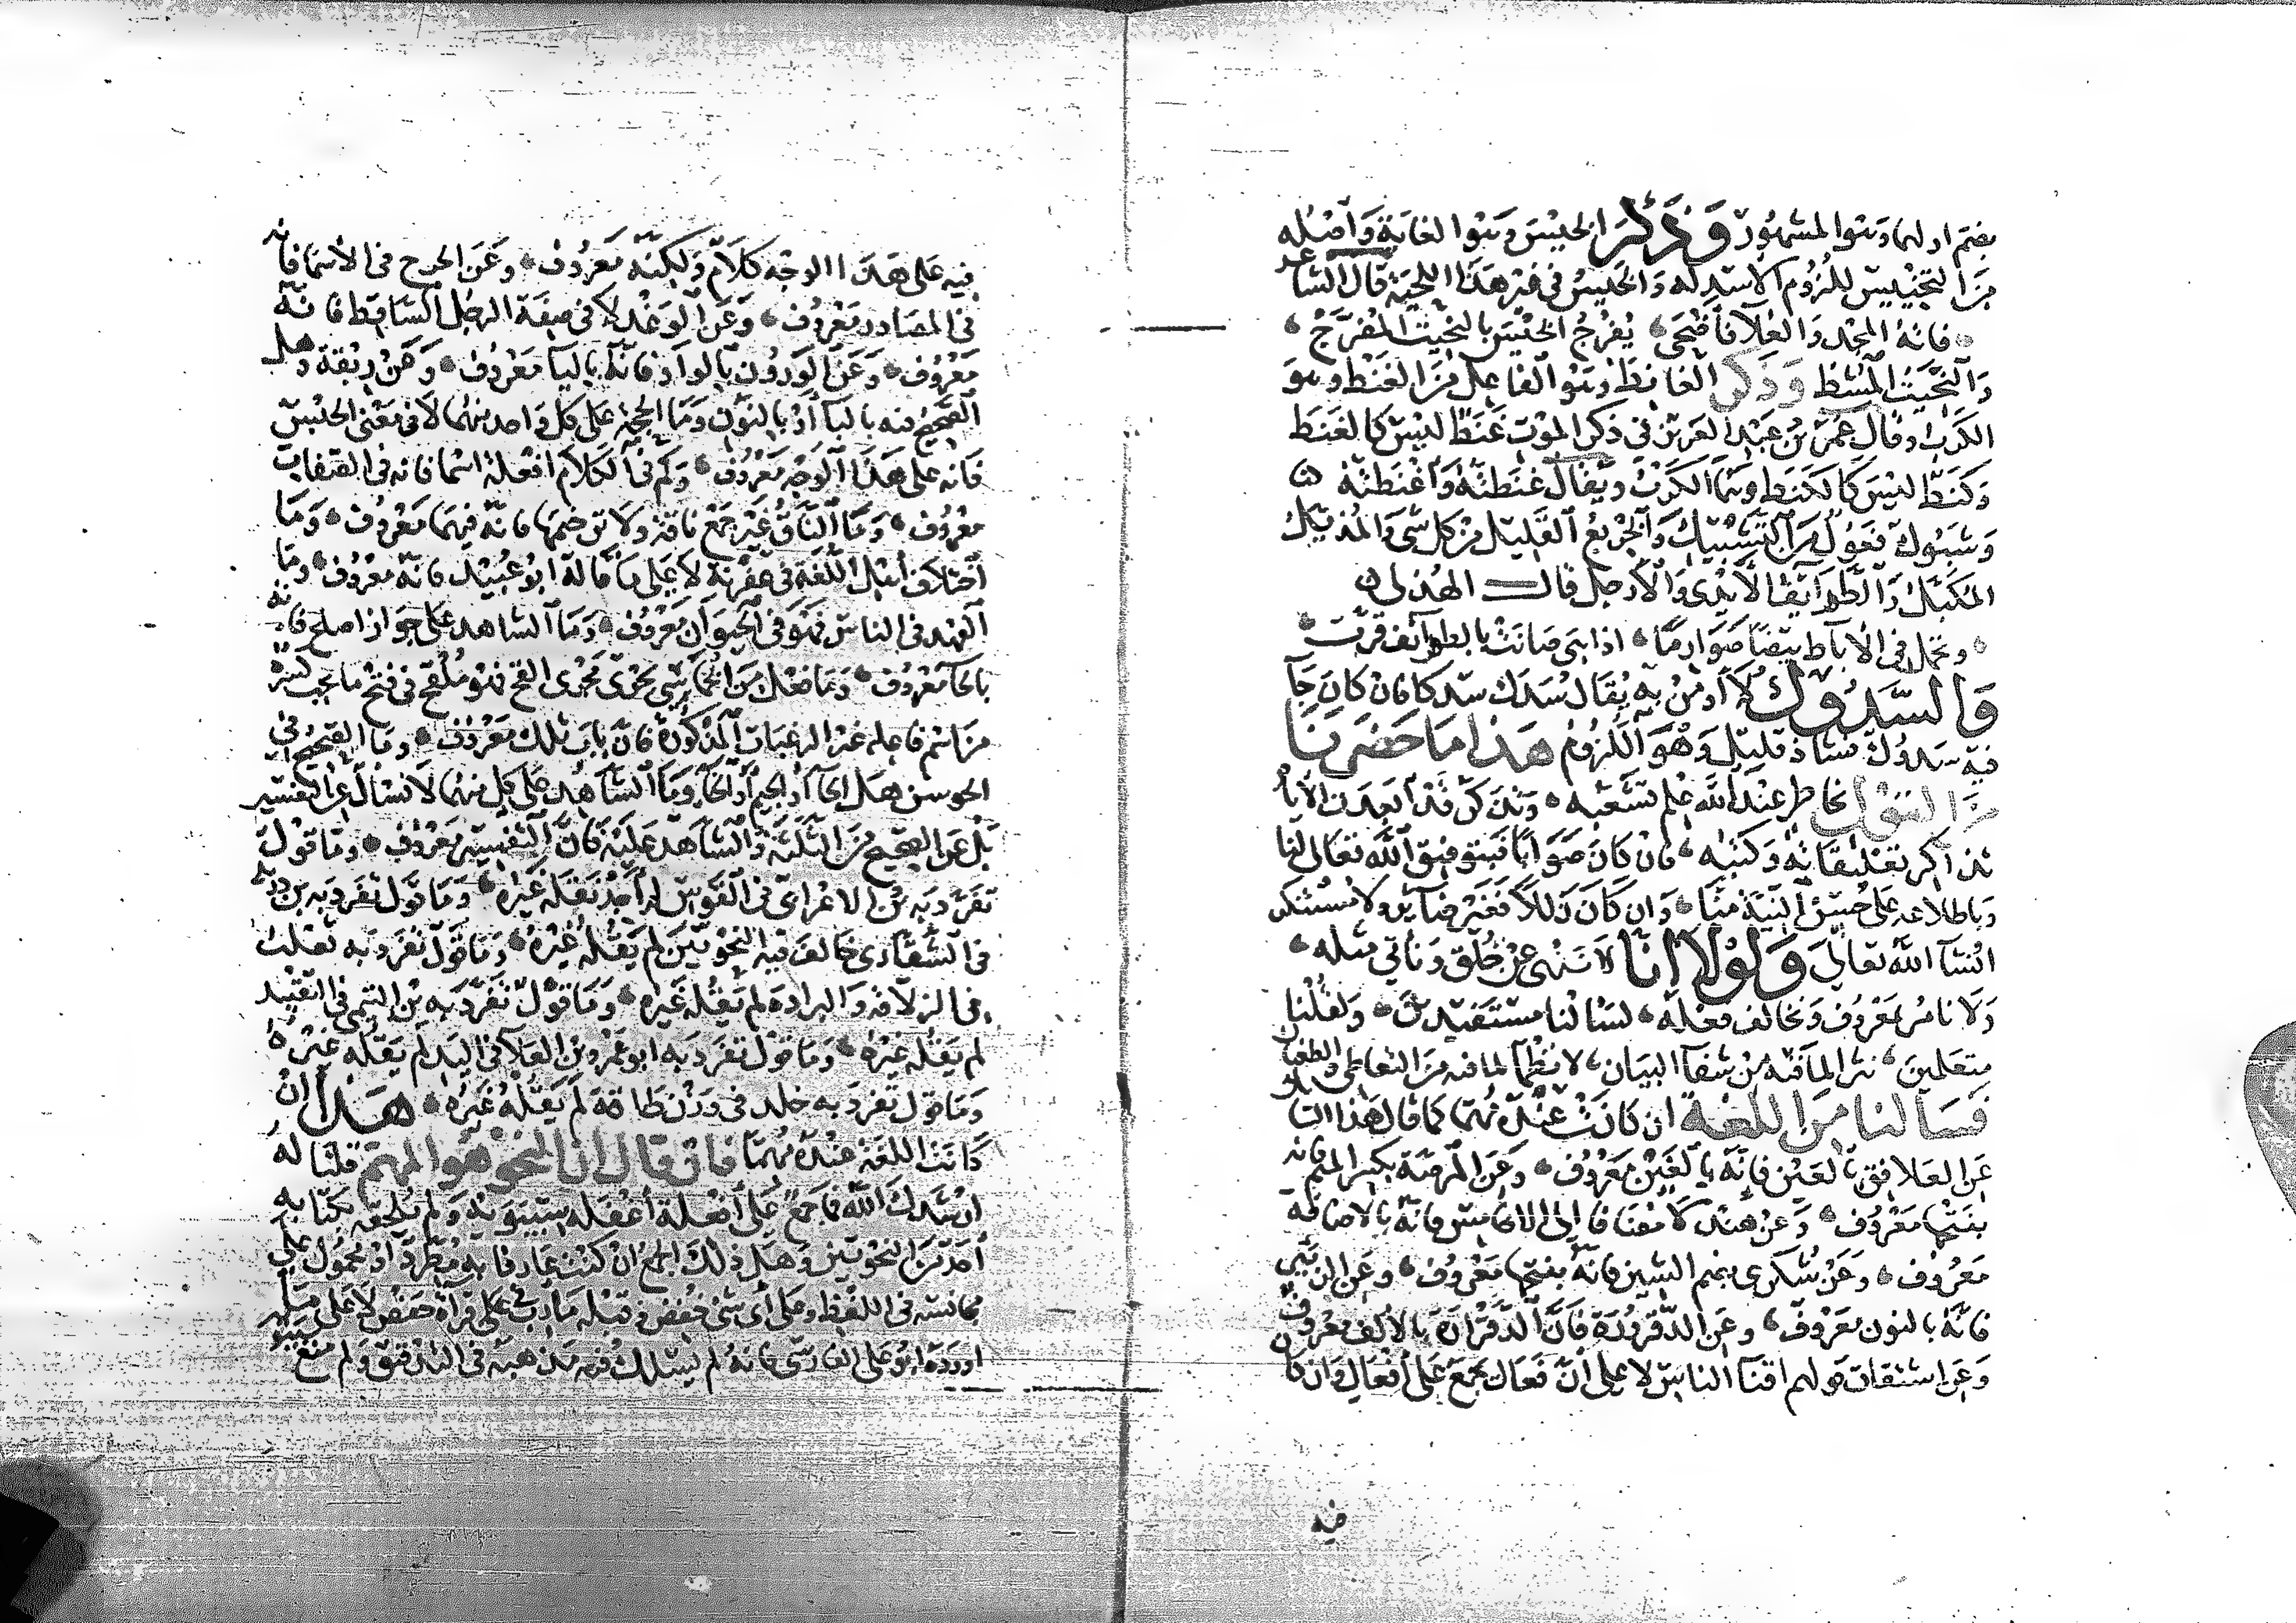 بضم اولها وهو المشهور وَذَكَرَ الخيس وهو الغابة واصله
من التخييس للزوم الاسد له والخيس في غير هذا اللحية قال الشاعر
فانه المجد والعلا فاضحى يفرج الخيس بالنحيت المفرج
والنحيت المشط وذكر الغانظ وهو الفاعل من الغنظ وهو
الكرب وقال عمر بن عبد العزيز في ذكر الموت غنظ ليس كالغنظ
وكنظ ليس كالكنظ وهما الكرب ويقال غنظته واغنظته
وشبوك تقول من التشبيك والجزيع القليل من كل شي والمذيك
المكبل والطوايف الايدي والارجل قال الهذلي
وتحمل في الاباط بيضا صوارما اذا هي صافت بالطوائف قرت
والسدوك لا اومن به يقال سدك سدكا فان كان جا
فيه سدوك فشاذ قليل وهو اللزوم هذا ما حضرنا
من القول بخاطر عند الله علم تشعبه وتذكر قد ابعدت الايام
تذاكر تعليقاته وكتبه فان كان صوابا فبتوفيق الله تعالى لنا
وباطلاعه على حسن النية منا وان كان زللا فغير ضاير ولا مستنكر
انشا الله تعالى ولولا انا لا ننهى عن خلق وناتي مثله
ولا نامر بمعروف ونخالف فعله لسالنا مستفيدين ولقلنا
متعلمين نثرا لما فيه من شفا البيان لا نظما لما فيه من التعاطي
فسالنا من اللغة ان كانت عنده مهما كما قال هذا
عن العلافق بالعين فانه بالغين معروف وعن المرضة بكسر الميم فانه
بفتحها معروف وعن هند لا مضافا الى الاخامس فانه بالاضافة
معروف وعن شكرى بضم الشين فانه بفتحها معروف وعن
فانه بالنون معروف وعن الدقرورة فان الدقرارة بالالف معروف
وعن اشتقاق قولهم اقنا الناس لا على ان فعال يجمع على افعال وان كان
فيه
فيه على هذا الوجه كلام ولكنه معروف وعن الحرح في الاسما فانه
في المصادر معروف وعن الوغد لا في صفة الرجل الساقط فانه
معروف وعن الورون بالواو فانه باليا معروف وعن ربقة وهل
الصحيح فيه باليا او بالنون وما الحجة على كل واحد منهما لا في معنى الخيس
فانه على هذا الوجه معروف وكم في الكلام افعلة اسما فانه في الصفات
معروف وما الناق غير جمع ناقة ولا ترخيمها فانه فيهما معروف وما
اختلاف اهل اللغة في عفرنة لا على ما قاله ابو عبيد فانه معروف وما
الفهد في الناس فهو في الحيوان معروف وما الشاهد على جواز اصلح فانه
بالحا معروف وما فعلل من الخماسي يجري مجرى القح فهو ملقح في فتح ما يجب كسره
من اسم فاعله غير الرغبات المذكورة فان باب تلك معروف وما الصحيح في
الجوسن هل الحا او الجيم او الخا وما الشاهد على كل منهما لا نسال عن التفسير
بل عن الصحيح من الثلثة والشاهد عليه فان التفسير معروف وما قول
تفرد به بن الاعرابي في القوس لم احد نقله غيره وما قول تفرد به بن دريد
في الشقارى خالف فيه النحويين لم يقله غيره وما قول تفرد به ثعلب
في الزلافة والبرادة لم يقله غيره وما قول تفرد به بن التيمي في التقييد
لم يقله غيره وما قول تفرد به ابو عمرو بن العلا في اليد لم يقله غيره
وما قول تفرد به خلد في وزن طاقة لم يقله غيره هذا ان
كانت اللغة عنده مهما فان قال ان النحو هو المهم قلنا له
ارشدك الله فاجمع على افعلة اغفله سيبويه ولم يلحقه بكتابه
احد من النحويين وهل ذلك الجمع ان كنت عارفا به مطرد او محمول على
مجانسه في اللفظ وعلى اي شي خفض وقيله يا رب على قراة حفص لا على مثل
اورده ابو على الفارسي فانه لم يسلك فيه مذهبه في التدقيق ولم